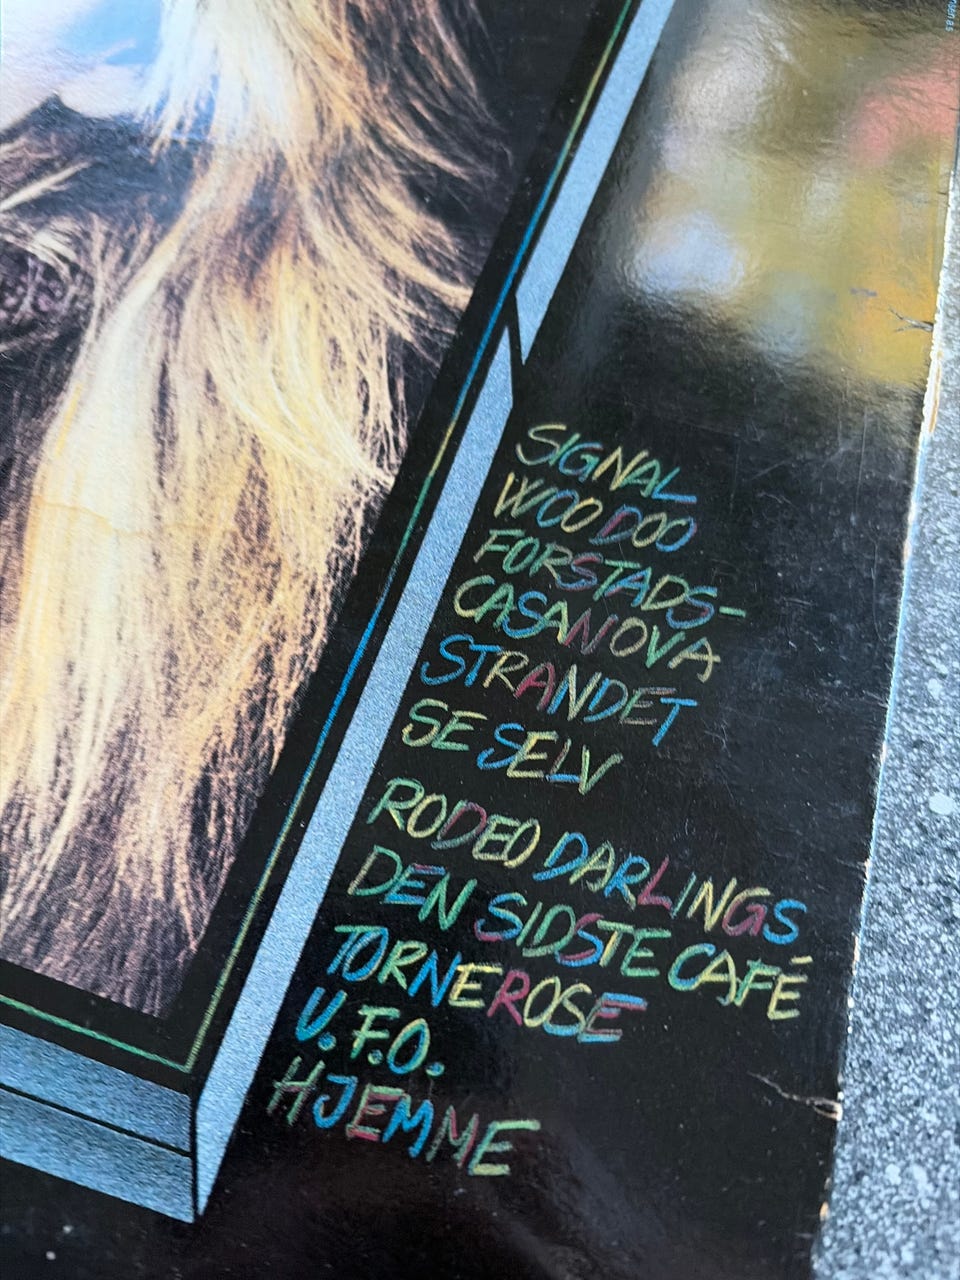 SIGNAL
WOODOO
FORSTADS-
CASANOVA
STRANDET
SE SELV
RODEO DARLINGS
DEN SIDSTE CAFÉ
TORNEROSE
U.F.O.
HJEMME